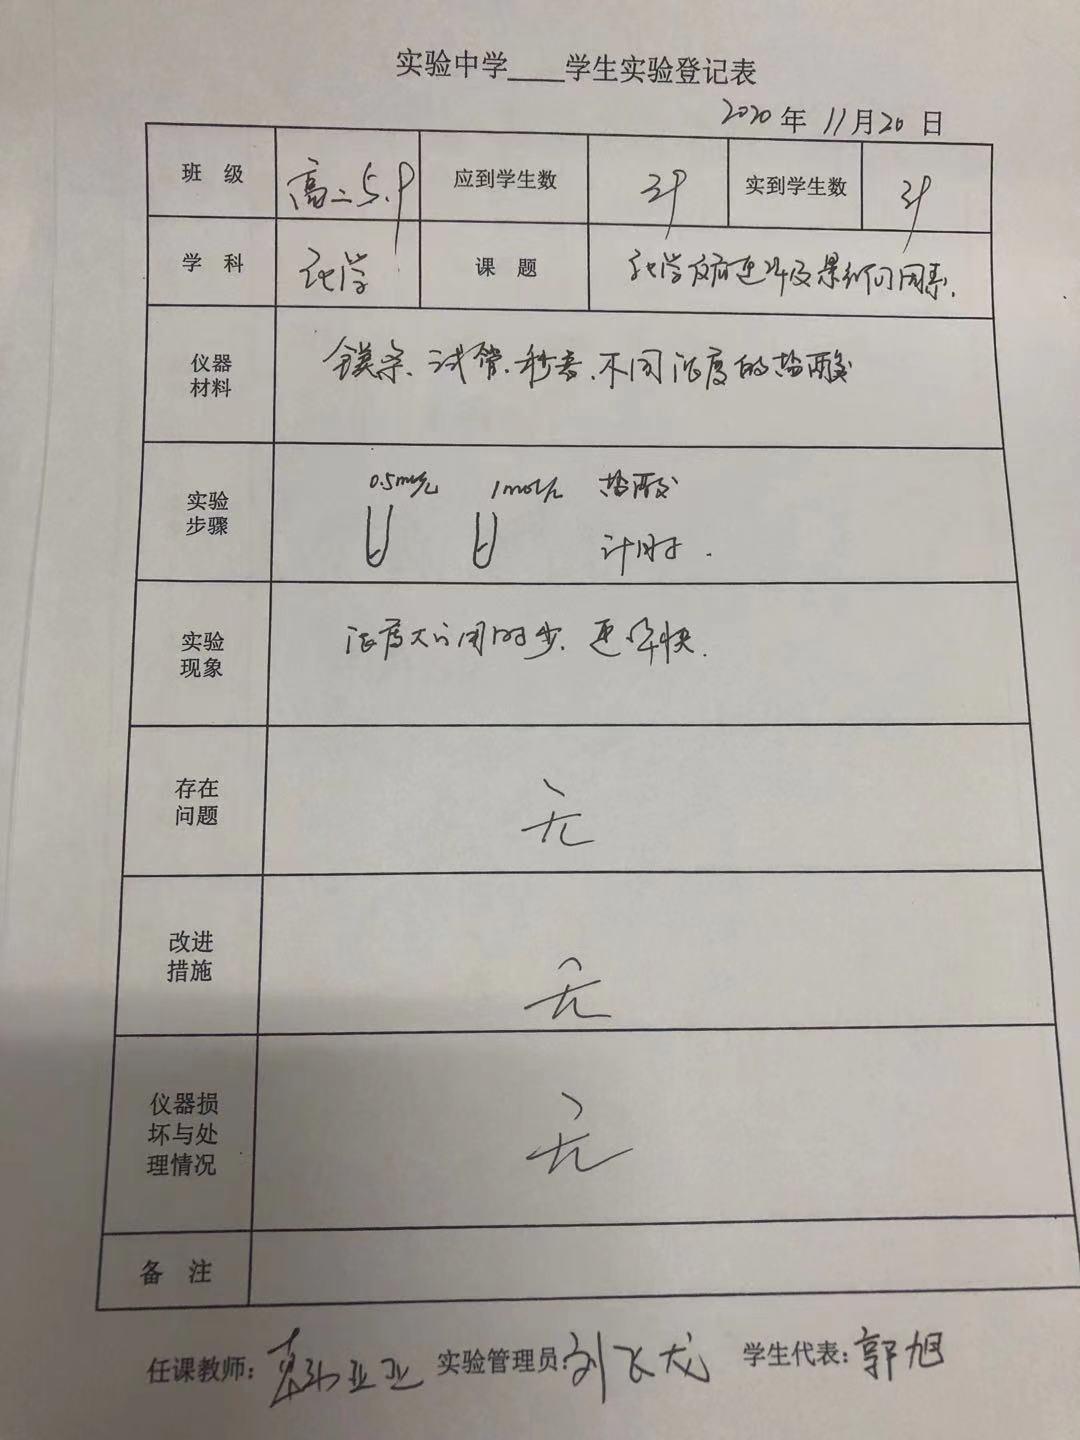 实验中学____学生实验登记表
2020年11月20日
班 级 高二5.9 应到学生数 39 实到学生数 39
学 科 化学 课 题 化学反应速率及影响因素.
仪器
材料
镁条、试管、秒表、不同浓度的盐酸
实验
步骤
0.5mol/L 1mol/L 盐酸
计时.
实验
现象
浓度大,用时少,速率快.
存在
问题
无
改进
措施
无
仪器损
坏与处
理情况
无
备 注
任课教师: 亚亚 实验管理员:刘飞龙 学生代表:郭旭